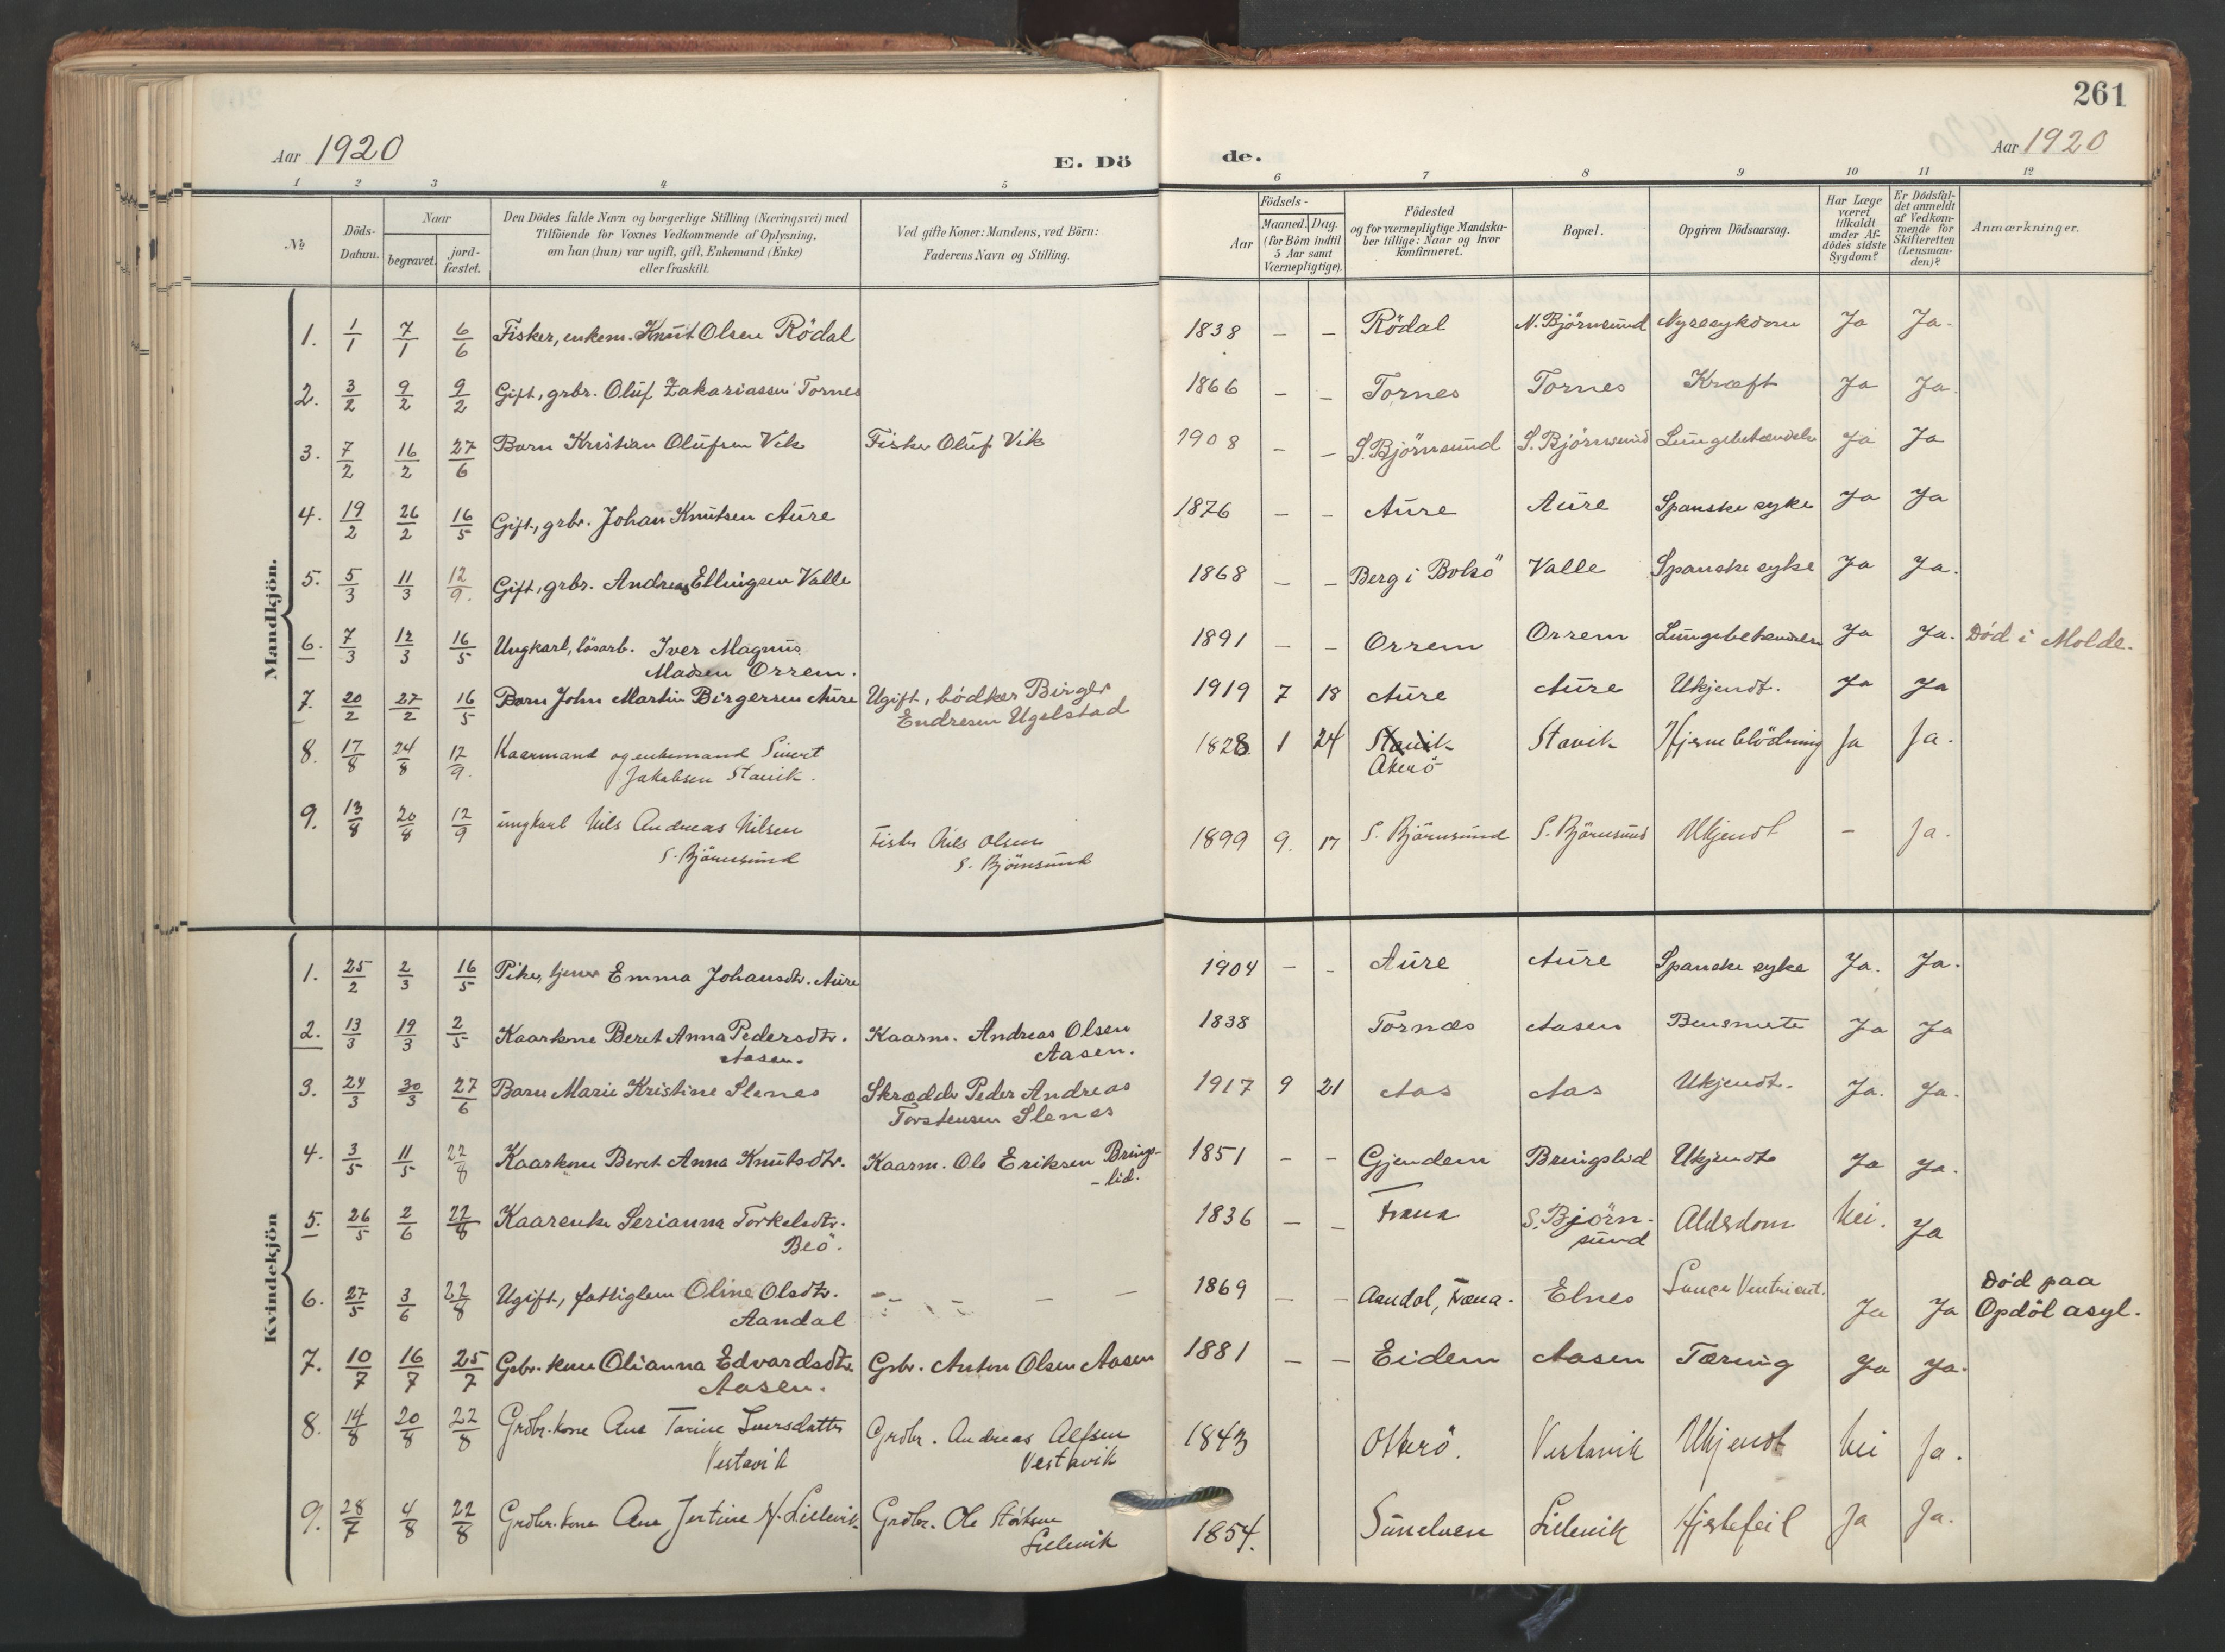 261
Aar 1920
E. Dö
de.
Aar 1920
1 2 3 4 5 6 7 8 9 10 11 12
№
Döds-
Datum.
Naar
begravet.
jord-
fæstet.
Den Dödes fulde Navn og borgerlige Stilling (Næringsvei) med
Tilföiende for Voxnes Vedkommende af Oplysning,
om han (hun) var ugift, gift, Enkemand (Enke)
eller fraskilt.
Ved gifte Koner: Mandens, ved Börn:
Faderens Navn og Stilling.
Födsels-
Aar
Maaned. Dag.
(for Börn indtil
5 Aar samt
Værnepligtige).
Födested
og for værnepligtige Mandska-
ber tillige: Naar og hvor
konfirmeret.
Bopæl.
Opgiven Dödsaarsag.
Har Læge
været
tilkaldt
under Af-
dödes sidste
Sygdom?
Er Dödsfal-
det anmeldt
af Vedkom-
mende for
Skifteretten
(Lensman-
den)?
Anmærkninger.
Mandkjön.
1. 1/1 7/1 6/6 Fisker, enkem. Knut Olsen Rödal 1838 – – Rödal N. Björnsund Nyresykdom Ja Ja.
2. 3/2 9/2 9/2 Gift, grbr. Oluf Zakariassen Tornes 1866 – – Tornes Tornes Kræft Ja Ja.
3. 7/2 16/2 27/6 Barn Kristian Olufsen Vik Fisker Oluf Vik 1908 – – S. Björnsund S. Björnsund Lungebetændelse Ja Ja
4. 19/2 26/2 16/5 Gift, grbr. Johan Knutsen Aure 1876 – – Aure Aure Spanske syke Ja Ja
5. 5/3 11/3 12/9. Gift, grbr. Andreas Ellingsen Valle 1868 – – Berg i Bolsö Valle Spanske syke Ja Ja.
6. 7/3 12/3 16/5 Ungkarl, lösarb. Iver Magnus 1891 – – Orrem Orrem Lungebetændelse Ja Ja. Död i Molde.
Madsen Orrem.
7. 20/2 27/2 16/5 Barn John Martin Birgersen Aure Ugift, bödker Birger 1919 7 18 Aure Aure Ukjendt. Ja Ja
Endresen Ugelstad
8. 17/8 24/8 12/9. Kaarmand og enkemand Sivert 1828 1 24 Stavik Stavik Hjerneblödning Ja Ja.
Jakobsen Stavik. Akerö
9. 13/8 20/8 12/9 ungkarl Nils Andreas Nilsen Fisker Nils Olsen 1899 9. 17 S. Björnsund S. Björnsund Ukjendt – Ja.
S. Björnsund S. Björnsund
Kvindekjön
1. 25/2 2/3 16/5 Pike, tjener Emma Johansdtr. Aure 1904 – – Aure Aure Spanske syke Ja. Ja.
2. 13/3 19/3 2/5 Kaarkone Beret Anna Pedersdtr. Kaarm. Andreas Olsen 1838 Tornæs Aasen Ja Ja
Aasen. Aasen.
3. 24/3 30/3 27/6 Barn Marie Kristine Slenes Skrædder Peder Andreas 1917 9 21 Aas Aas Ukjendt. Ja. Ja.
Torstensen Slenes
4. 3/5 11/5 22/8 Kaarkone Beret Anna Knutsdtr. Kaarm. Ole Eriksen Brings- 1851 – – Gjendem Bringslid Ukjendt Ja Ja.
-lid.
5. 26/5 2/6 22/8 Kaarenke Serianna Torkelsdtr. 1836 – – Fræna S. Björn- Alderdom Nei. Ja
Beö. sund
6. 27/5 3/6 22/8 Ugift, fattiglem Oline Olsdtr. – – – – 1869 – – Aandal, Fræna. Elnes Ja Ja Död paa
Aandal Opdöl asyl.
7. 10/7 16/7 25/7 Gbr. kone Olianna Edvardsdtr. Gbr. Anton Olsen Aasen 1881 – – Eidem Aasen Tæring Ja Ja.
Aasen.
8. 14/8 20/8 22/8 Grdbr. kone Ane Iversdatter Grdbr. Andreas Alfsen 1843 Otterö. Vestavik Ukjendt Nei Ja.
Vestavik Vestavik
9. 28/7 4/8 22/8 Grdbr. kone Ane N. Lillevik Grdbr. Ole 1854. Sunelven Lillevik Hjertefeil Ja Ja.
Lillevik